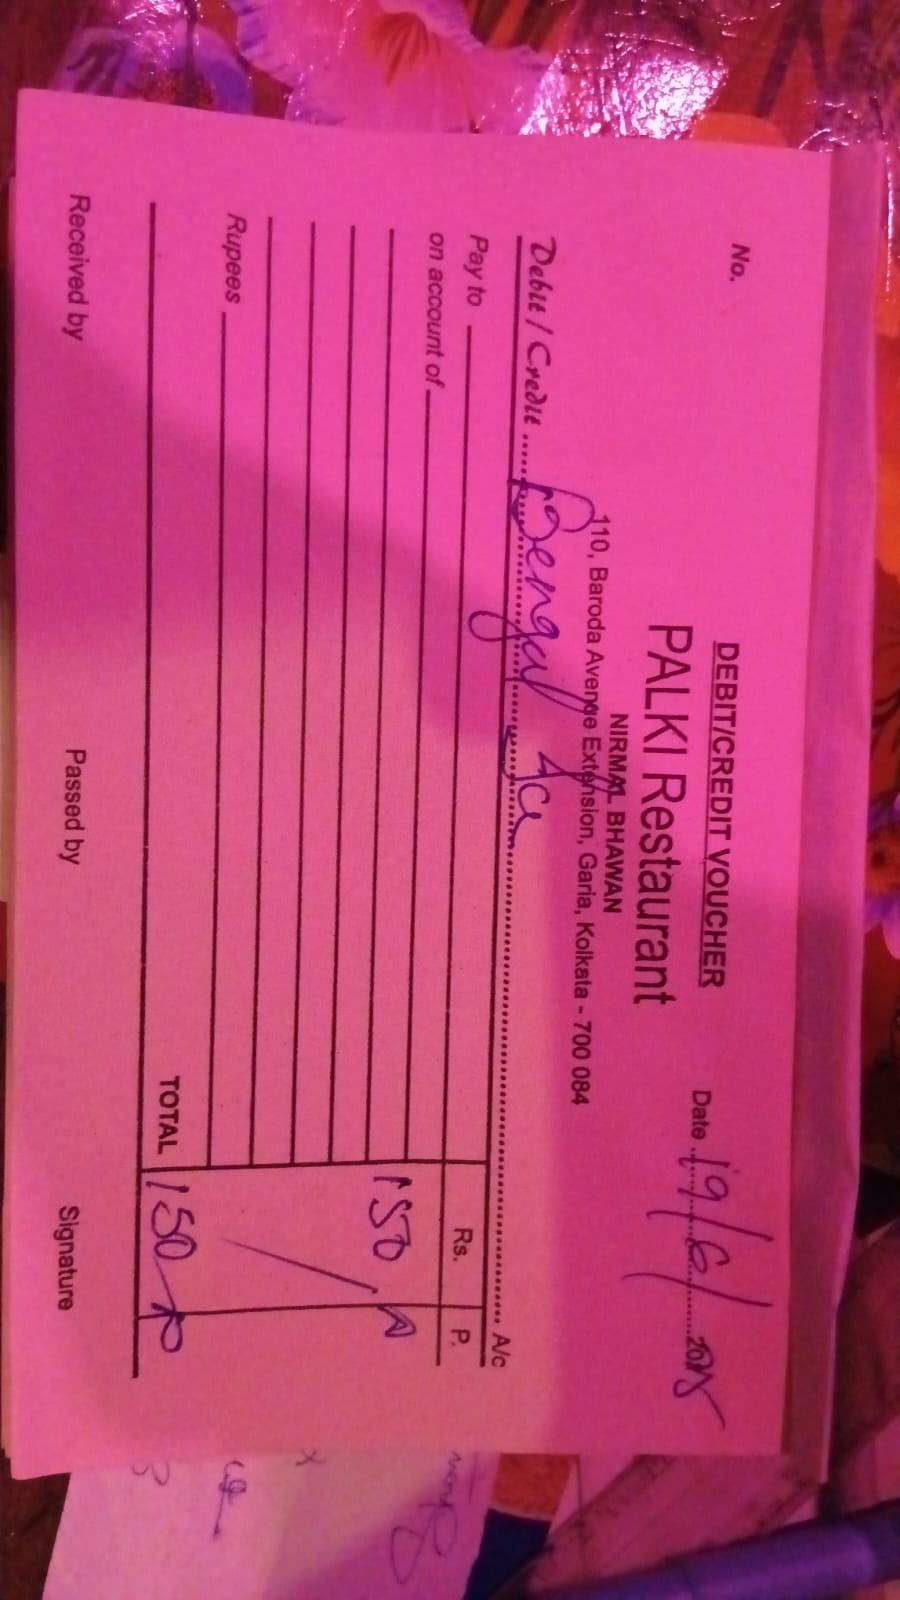 DEBIT/CREDIT VOUCHER
No. Date 19/6/
PALKI Restaurant
NIRMAL BHAWAN
110, Baroda Avenue Extension, Garia, Kolkata - 700 084
Debit / Credit Bengal A/c
Pay to Rs. P.
on account of 150
Rupees
TOTAL 150
Received by Passed by Signature